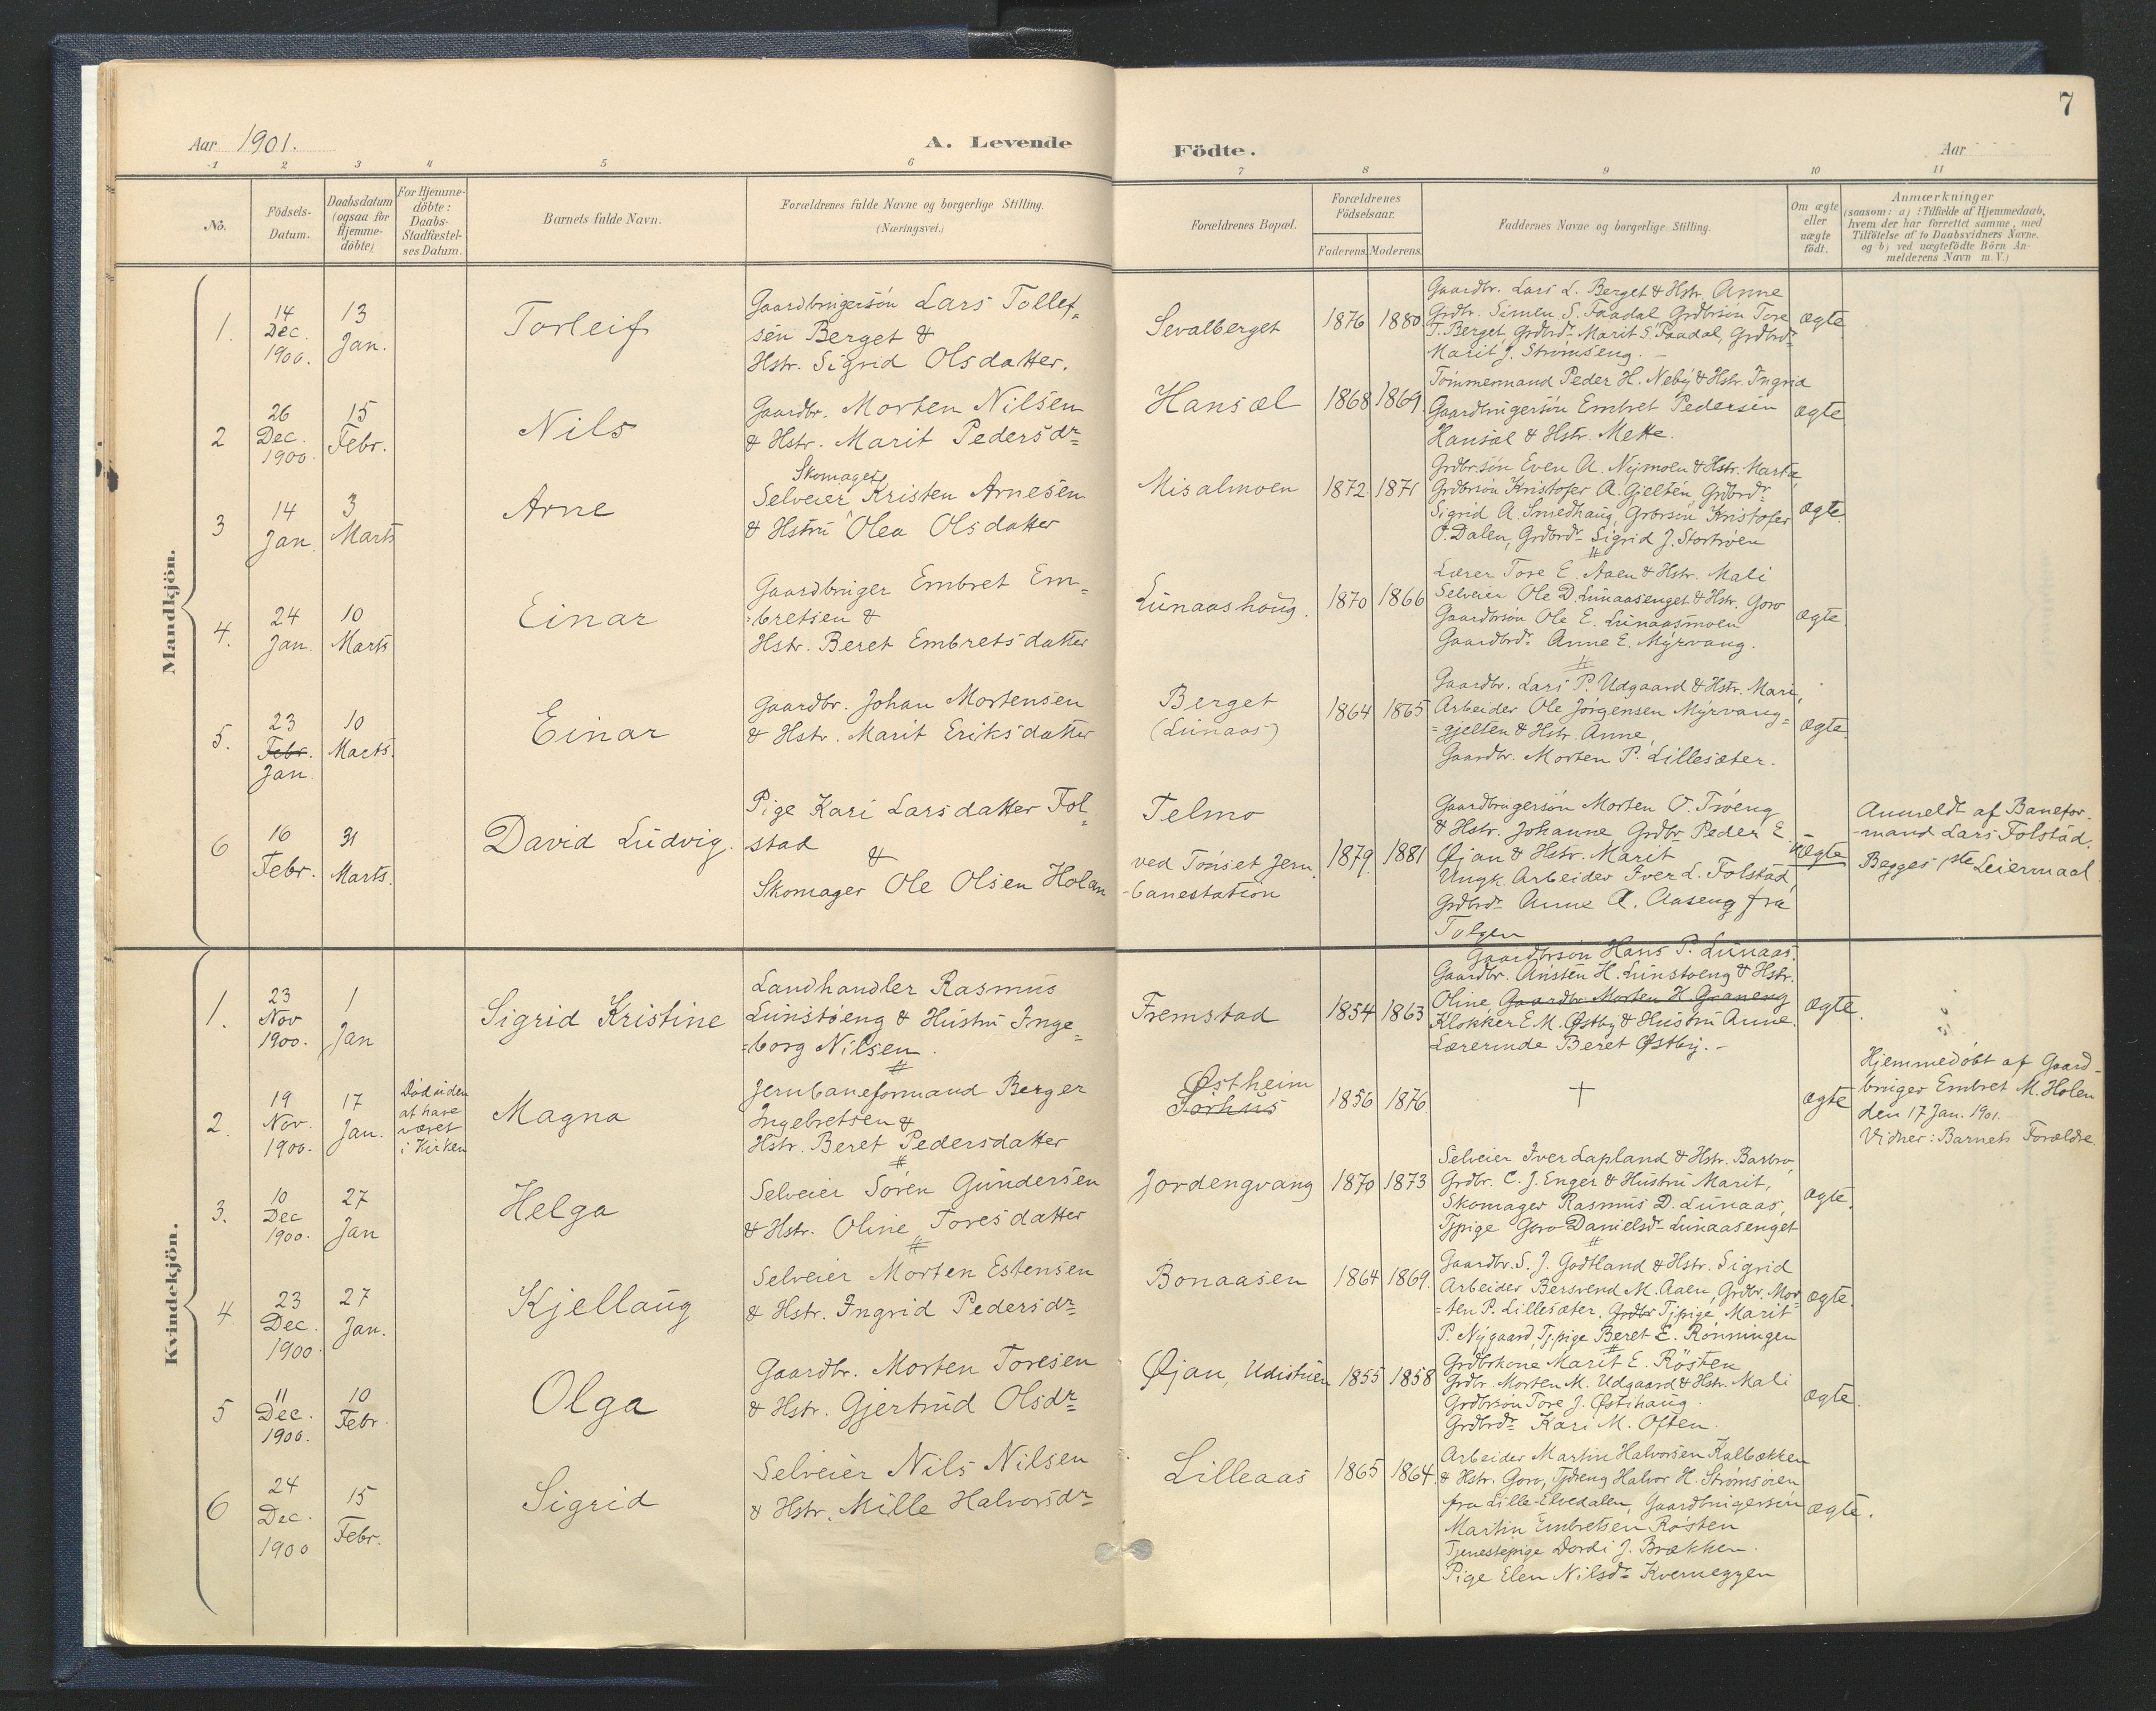 7
Aar 1901.
A. Levende Födte.
Aar
1 2 3 4 5 6 7 8 9 10 11
No.
Födsels-
Datum.
Daabsdatum
(ogsaa for
Hjemme-
döbte)
For Hjemme-
döbte:
Daabs-
Stadfæstel-
ses Datum.
Barnets fulde Navn.
Forældrenes fulde Navne og borgerlige Stilling.
(Næringsvei.)
Forældrenes Bopæl.
Forældrenes
Födselsaar.
Faderens. Moderens.
Faddernes Navne og borgerlige Stilling.
Om ægte
eller
uægte
födt.
Anmærkninger
(saasom: a) i Tilfælde af Hjemmedaab,
hvem der har forrettet samme, med
Tilföielse af to Daabsvidners Navne.
og b) ved uægtefödte Börn An-
melderens Navn m. V.)
Mandkjön.
1.
14
Dec.
1900.
13
Jan.
Torleif
Gaardbrugersön Lars Tollef-
sen Berget &
Hstr. Sigrid Olsdatter.
Sevalberget
1876 1880
Gaardbr. Lars L. Berget & Hstr. Anne
Grdbr. Simen S. Faadal Grdbrsön Tore
T. Berget, Grdbrdr Marit S. Faadal, Grdbrdr
Marit J. Strömseng. -
ægte
2
26
Dec.
1900.
15
Febr.
Nils
Gaardbr. Morten Nilsen
& Hstr. Marit Pedersdr
Hansæl
1868 1869
Tömmermand Peder H. Neby & Hstr. Ingrid
Gaardbrugersön Embret Pedersen
Hansæl & Hstr. Mette.
ægte
3
14
Jan.
3
Marts
Arne
Skomager
Selveier Kristen Arnesen
& Hstru Olea Olsdatter
Misalmoen
1872 1871
Grdbrsön Even A. Nymoen & Hstr. Marta,
Grdbrsön Kristofer A. Gjelten, Grdbrdr
Sigrid A. Smedhaug, Grbrsön Kristofer
O. Dalen, Grdbrdr Sigrid J. Stortröen
ægte.
4.
24
Jan.
10
Marts
Einar
Gaardbruger Embret Em-
bretsen &
Hstr. Beret Embretsdatter
Lunaashoug.
1870 1866
Lærer Tore E. Aaen & Hstr. Mali
Selveier Ole D. Lunaasenget & Hstr. Goro
Gaardbrsön Ole E. Lunaasmoen
Gaardbrdr Anne E. Myrvang.
ægte.
5.
23
Febr.
Jan.
10
Marts.
Einar
Gaardbr. Johan Mortensen
& Hstr. Marit Eriksdatter
Berget
(Lunaas)
1864 1865
Gaardbr. Lars P. Udgaard & Hstr. Mari,
Arbeider Ole Jörgensen Myrvang-
gjelten & Hstr. Anne,
Gaardbr. Morten P. Lillesæter.
ægte.
6
16
Febr.
31
Marts.
David Ludvig.
Pige Kari Larsdatter Fol-
stad
&
Skomager Ole Olsen Holan
Telmo
ved Tönset Jern-
banestation
1879. 1881
Gaardbrugersön Morten O. Tröeng
& Hstr. Johanne Grdbr Peder E.
Öjan & Hstr. Marit
Ungk. Arbeider Iver L. Folstad,
Grdbrdr Anne A. Aaseng fra
Tolgen
uægte
Anmeldt af Banefor-
mand Lars Folstad.
Begges 1ste Leiermaal
Kvindekjön.
1.
23
Nov
1900.
1
Jan
Sigrid Kristine
Landhandler Rasmus
Lunstöeng & Hustru Inge-
borg Nilsen.
Fremstad
1854 1863
Gaardbrsön Hans P. Lunaas.
Gaardbr. Östen H. Lunstoeng & Hstr.
Oline, Gaardbr. Morten H. Graneng
Klokker E M. Østby & Hustru Anne.
Lærerinde Beret Østby. -
ægte.
2.
19
Nov.
1900.
17
Jan.
Död uden
at have
været
i Kirken
Magna
Jernbaneformand Berger
Ingebretsen &
Hstr. Beret Pedersdatter
Østheim
Torhus
1856 1876.
†
ægte
Hjemmedöbt af Gaard-
bruger Embret M. Holen
den 17 Jan. 1901.
Vidner: Barnets Forældre.
3.
10
Dec
1900.
27
Jan
Helga
Selveier Sören Gundersen
& Hstr. Oline Toresdatter
Jordengvang
1870 1873
Selveier Iver Lapland & Hstr. Barbro,
Grdbr. C. J. Enger & Hustru Marit,
Skomager Rasmus D. Lunaas,
Tjpige Goro Danielsdr Lunaasenget
ægte.
4
23
Dec.
1900
27
Jan.
Kjellaug
Selveier Morten Estensen
& Hstr. Ingrid Pedersdr
Bonaasen
1864 1869.
Gaardbr. S. J. Godtland & Hstr. Sigrid
Arbeider Bersvend M. Aaen, Grdbr. Mor-
ten P. Lillesæter, Grdbr Tjpige, Marit
P. Nygaard, Tj.pige Beret E. Rönningen
ægte.
5
11
Dec.
1900.
10
Febr.
Olga
Gaardbr. Morten Toresen
& Hstr. Gjertrud Olsdr
Øjan, Udistuen
1855 1858
Grdbrkone Marit E. Rösten
Grdbr. Morten M. Udgaard & Hstr. Mali
Grdbrsön Tore J. Østihaug.
Grdbrdr Kari M. Often.
ægte.
6
24
Dec.
1900
15
Febr.
Sigrid
Selveier Nils Nilsen
& Hstr. Mille Halvorsdr
Lilleaas
1865 1864.
Arbeider Martin Halvorsen Kalbækken
& Hstr. Goro, Tjdreng Halvor H. Strömsören
fra Lille-Elvedalen, Gaardbrugersön
Martin Embretsen Rösten
Tjenestepige Dordi J. Brækken.
Pige Elen Nilsdr Kverneggen
ægte.